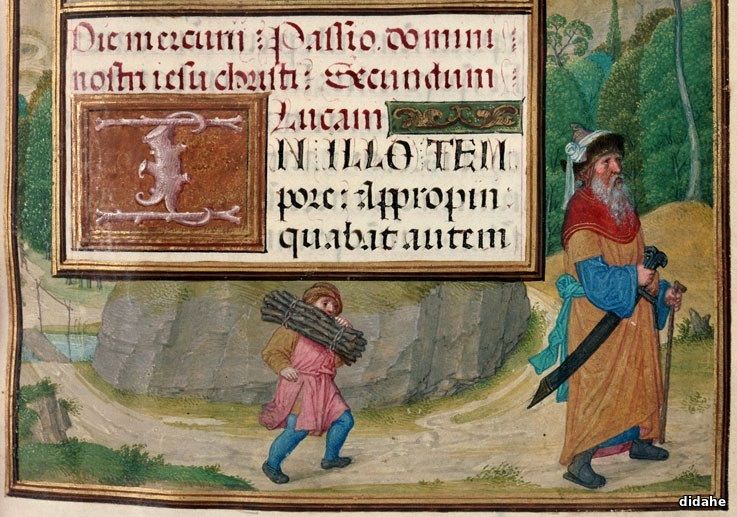 Die mercurii : Passio. domini
nostri iesu christi : Secundum
Lucam
IN ILLO TEM
pore : Appropin
quabat autem
didahe